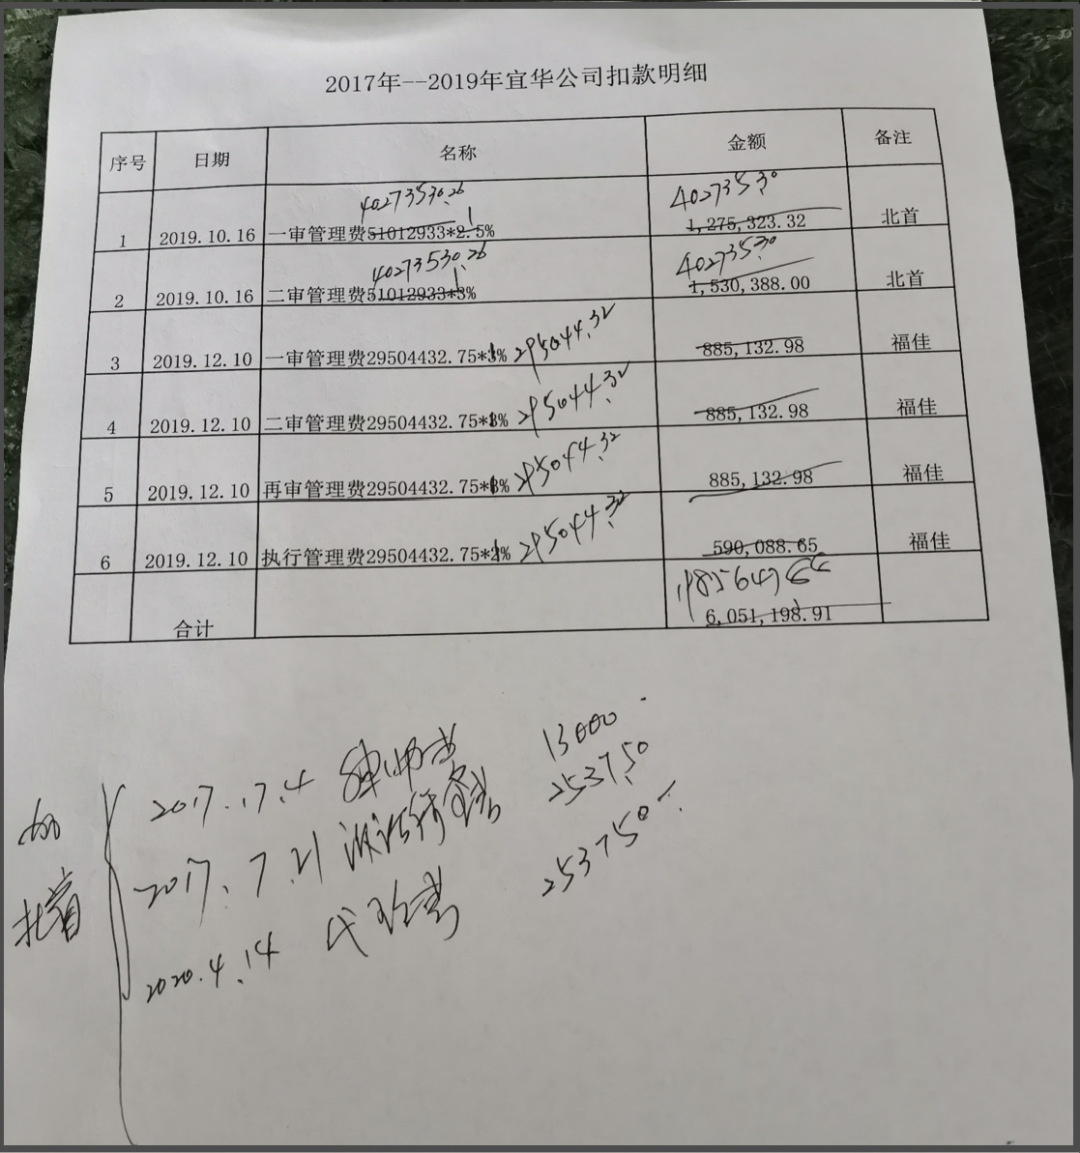 2017年--2019年宜华公司扣款明细
序号 日期 名称 金额 备注
40273530.26 402735.30
1 2019.10.16 一审管理费51012933*2.5% 1,275,323.32 北首
40273530.26 402735.30
2 2019.10.16 二审管理费51012933*3% 1,530,388.00 北首
3 2019.12.10 一审管理费29504432.75*1% 295044.32 885,132.98 福佳
4 2019.12.10 二审管理费29504432.75*1% 295044.32 885,132.98 福佳
5 2019.12.10 再审管理费29504432.75*1% 295044.32 885,132.98 福佳
6 2019.12.10 执行管理费29504432.75*1% 295044.32 590,088.65 福佳
合计 6,051,198.91
2017.17.4 律师费 13000
2017.7.21 253750
北首
2020.4.14 代理费 253750